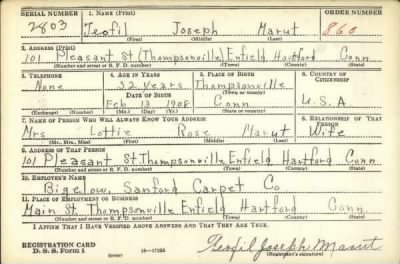 SERIAL NUMBER 1. NAME (Print) ORDER NUMBER
2803 Teofil Joseph Marut 860
(First) (Middle) (Last)
2. ADDRESS (Print)
101 Pleasant St (Thompsonville) Enfield Hartford Conn
(Number and street or R. F. D. number) (Town) (County) (State)
3. TELEPHONE 4. AGE IN YEARS 5. PLACE OF BIRTH 6. COUNTRY OF CITIZENSHIP
None 32 Years Thompsonville
DATE OF BIRTH (Town or county)
Feb 13 1908 Conn U.S.A.
(Exchange) (Number) (Mo.) (Day) (Yr.) (State or country)
7. NAME OF PERSON WHO WILL ALWAYS KNOW YOUR ADDRESS 8. RELATIONSHIP OF THAT PERSON
Mrs Lottie Rose Marut Wife
(Mr., Mrs., Miss) (First) (Middle) (Last)
9. ADDRESS OF THAT PERSON
101 Pleasant St. Thompsonville Enfield Hartford Conn
(Number and street or R. F. D. number) (Town) (County) (State)
10. EMPLOYER'S NAME
Bigelow, Sanford Carpet Co
11. PLACE OF EMPLOYMENT OR BUSINESS
Main St. Thompsonville Enfield Hartford Conn
(Number and street or R. F. D. number) (Town) (County) (State)
I AFFIRM THAT I HAVE VERIFIED ABOVE ANSWERS AND THAT THEY ARE TRUE.
REGISTRATION CARD
D. S. S. Form 1 (over) Teofil Joseph Marut
(Registrant's signature)